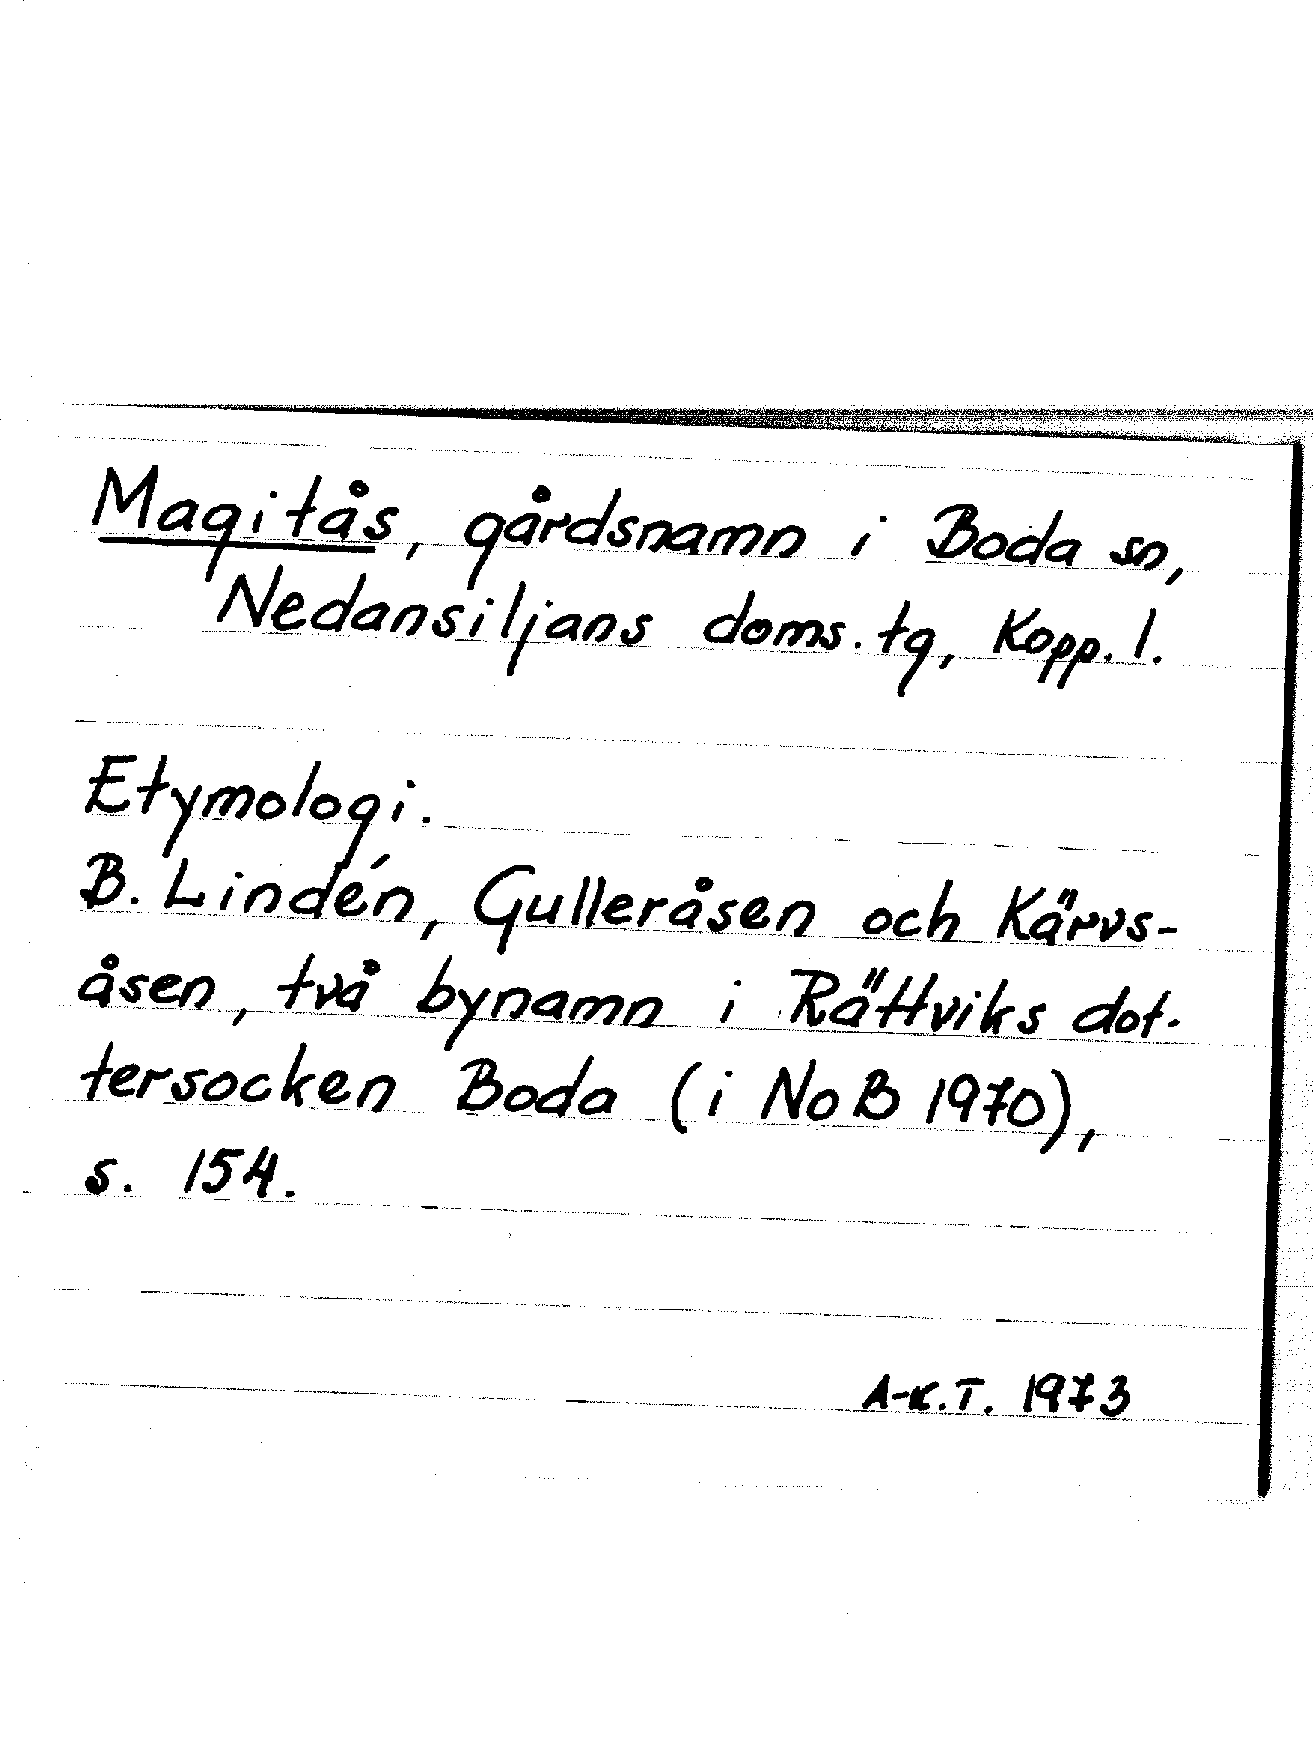 Magitås, gårdsnamn i Boda sn,
Nedansiljans doms. tg, Kopp. l.
Etymologi.
B. Lindén, Gulleråsen och Kärvs-
åsen, två bynamn i Rättviks dot-
tersocken Boda (i NoB 1970),
s. 154.
A-K.T. 1973